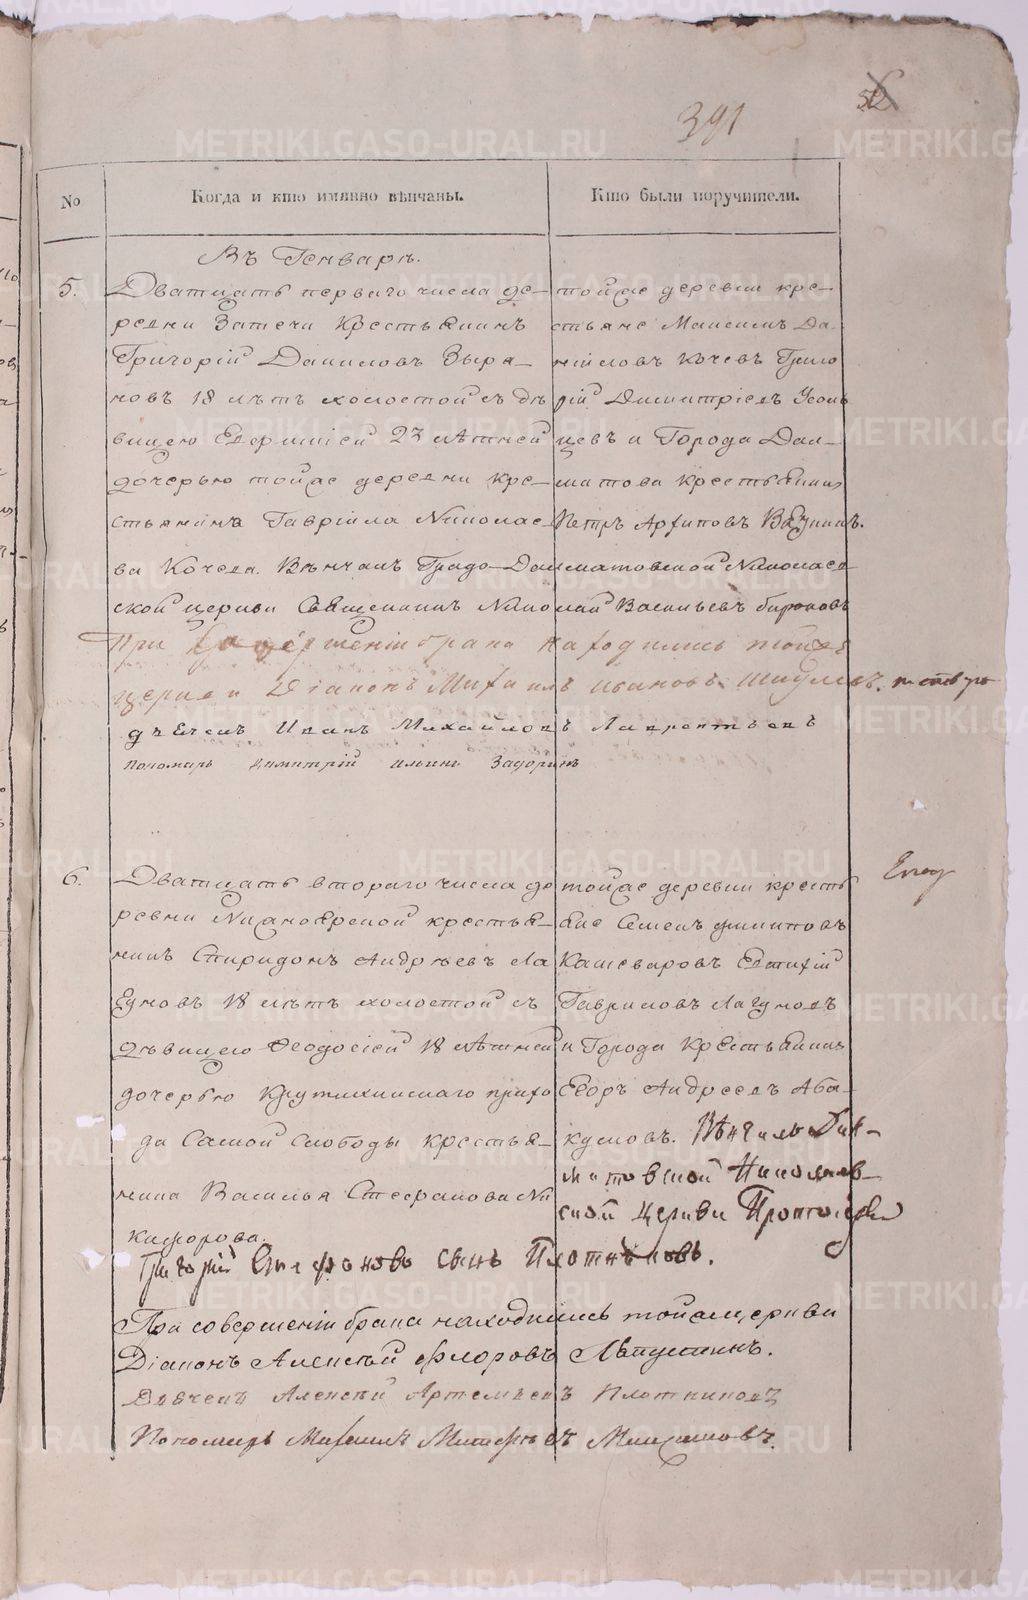 391
№
Когда и кто имянно вѣнчаны.
Кто были поручители.
Въ Генварѣ.
5.
Дватцать перваго числа де-
ревни Затечи Крестьянинъ
Григорій Даниловъ Зыря-
новъ 18 лѣтъ холостой съ дѣ
вицею 23 лѣтней
дочерью тойже деревни кре-
стьянина Гаврiила Николае-
ва Кочева. Вѣнчалъ Градо-Далматовской Николаев
ской церкви Священникъ Николай Васильевъ Бирюковъ
тойже деревни кре-
стьяне Максимъ Да-
нійловъ Кочевъ Григо
рій Димитріевъ Усоль
цевъ и Города Дал-
матова крестьянинъ
Петръ Архиповъ
При совершеніи брака находились тойже
церкви Діаконъ Михаилъ Ивановъ
дьячекъ Иванъ Михайловъ Лаврентьевъ
пономарь Димитрій Ильинъ Задоринъ
6.
Дватцать втораго числа де
ревни Нижнеярской крестья-
нинъ Спиридонъ Андрѣевъ Ла
гуновъ 18 лѣтъ холостой съ
дѣвицею Феодосіей 18 лѣтней
дочерью Крутихинскаго прихо
да Самой Слободы крестья-
нина Василья Стефанова Ни
кифорова.
тойже деревни кресть
яне Семенъ Филиповъ
Кашеваровъ Евтихій
Гавриловъ Лагуновъ
и Города Крестьянинъ
Егоръ Андреевъ Аба-
кумовъ. Вѣнчалъ Дал-
матовской Николаев-
ской Церкви Протоіерей
Григорій Стефановъ сынъ Плотниковъ.
При совершеніи брака находились тойже церкви
Діаконъ Алексѣй Флоровъ Лепустинъ.
Дьячекъ Алексѣй Артемьевъ Плотниковъ
Пономарь Михаилъ
METRIKI.GASO-URAL.RU